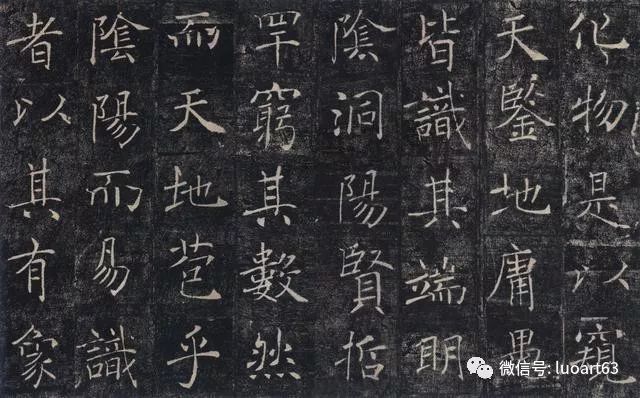 化物是以窺
天鑒地庸愚
皆識其端明
陰洞陽賢哲
罕窮其數然
而天地苞乎
陰陽而易識
者以其有象
微信号: luoart63